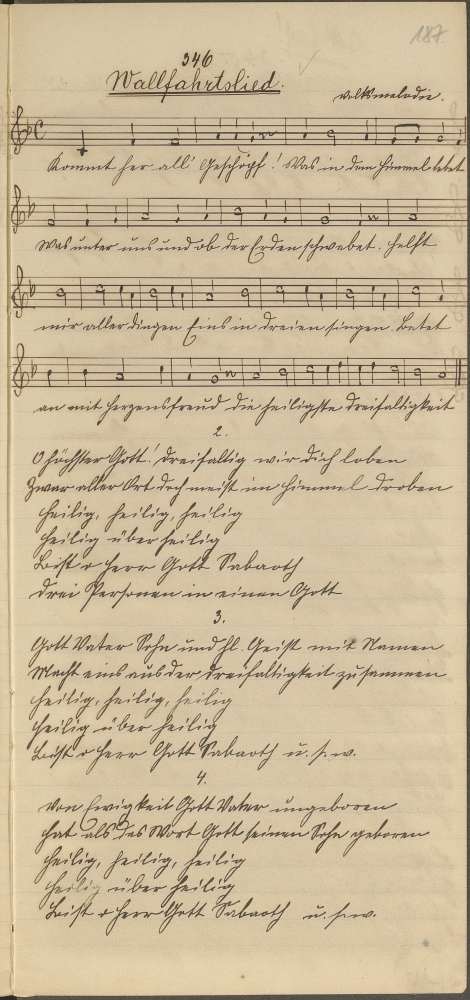 187.
346
Wallfahrtslied.
Volksmelodie.
Kommt her all' Geschöpf! Was in dem Himmel lebet
Was unter uns und ob der Erden schwebet. Helft
mir aller dingen Eins in dreien singen. Betet
an mit Herzensfreud die heiligste Dreifaltigkeit
2.
O höchster Gott! dreifaltig wir dich loben
Zwar aller Ort doch meist im Himmel droben
Heilig, heilig, heilig
Heilig über heilig
Bist o Herr Gott Sabaoth
Drei Personen in einen Gott
3.
Gott Vater Sohn und hl. Geist mit Namen
Macht eins aus der Dreifaltigkeit zusammen
Heilig, heilig, heilig
Heilig über heilig
Bist o Herr Gott Sabaoth u. s. w.
4.
Von Ewigkeit Gott Vater ungeboren
Hat als das Wort Gott seinen Sohn geboren
Heilig, heilig, heilig
Heilig über heilig
Bist o Herr Gott Sabaoth u. s. w.